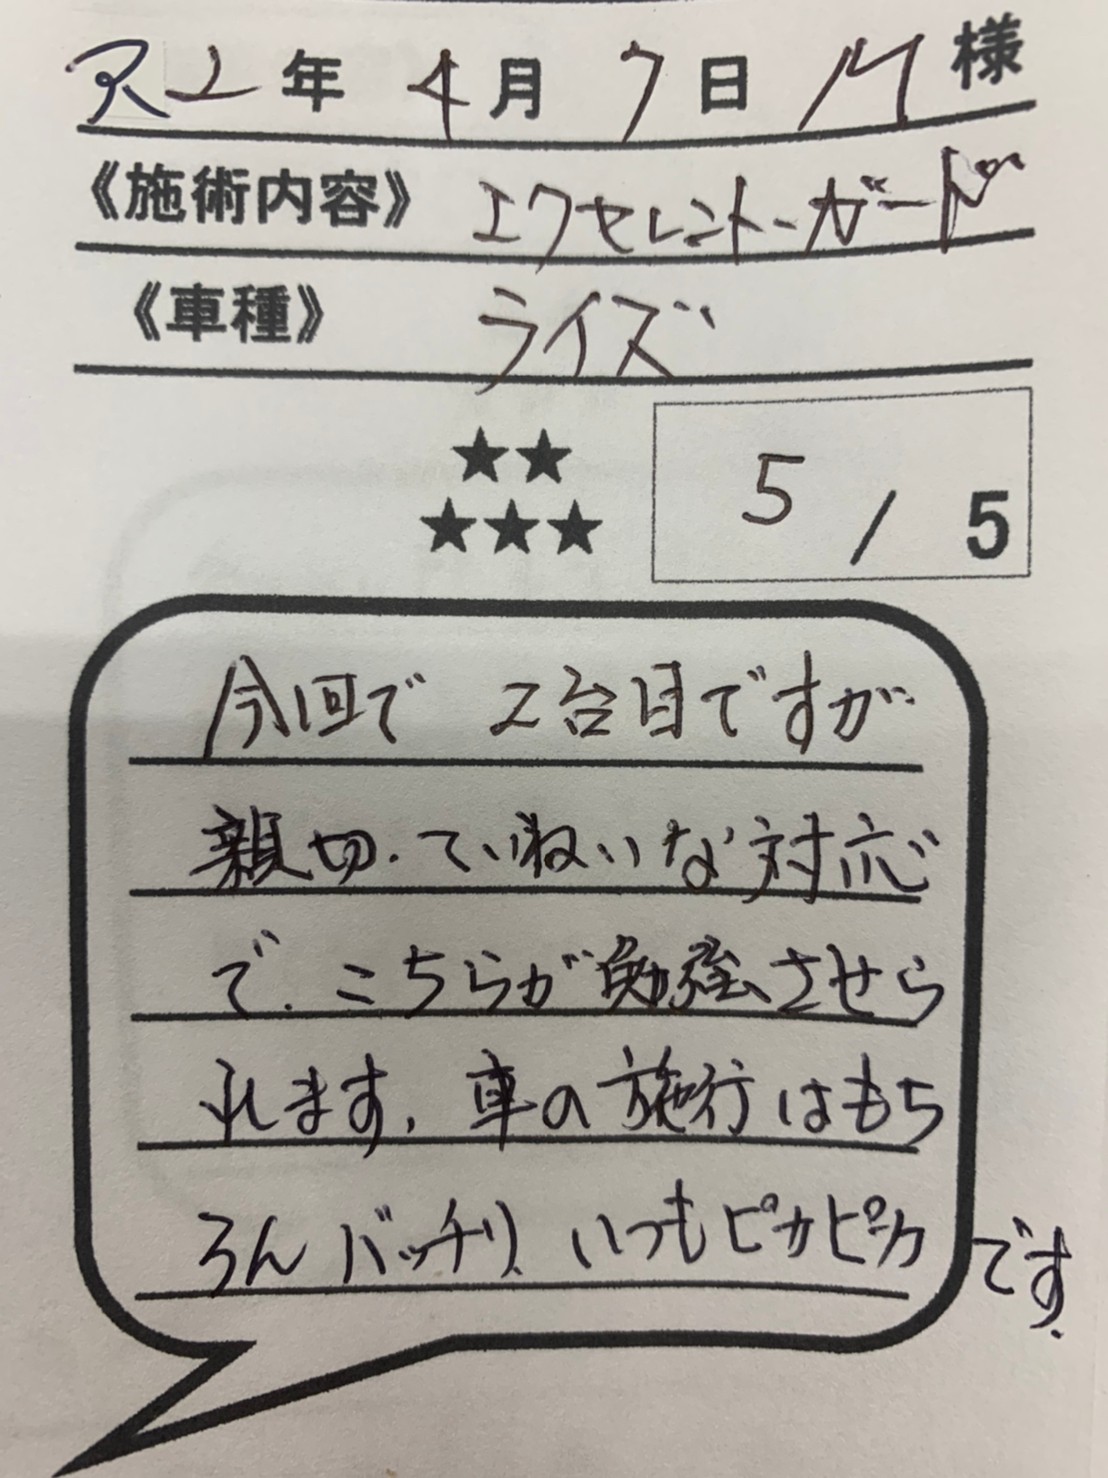 R2年 4月 7日 M様
《施術内容》 エクセレント-ガード
《車種》 ライズ
★★
★★★
5 / 5
今回で 2台目ですが
親切.ていねいな対応
で.こちらが勉強させら
れます.車の施行はもち
ろんバッチリ.いつもピカピカです.